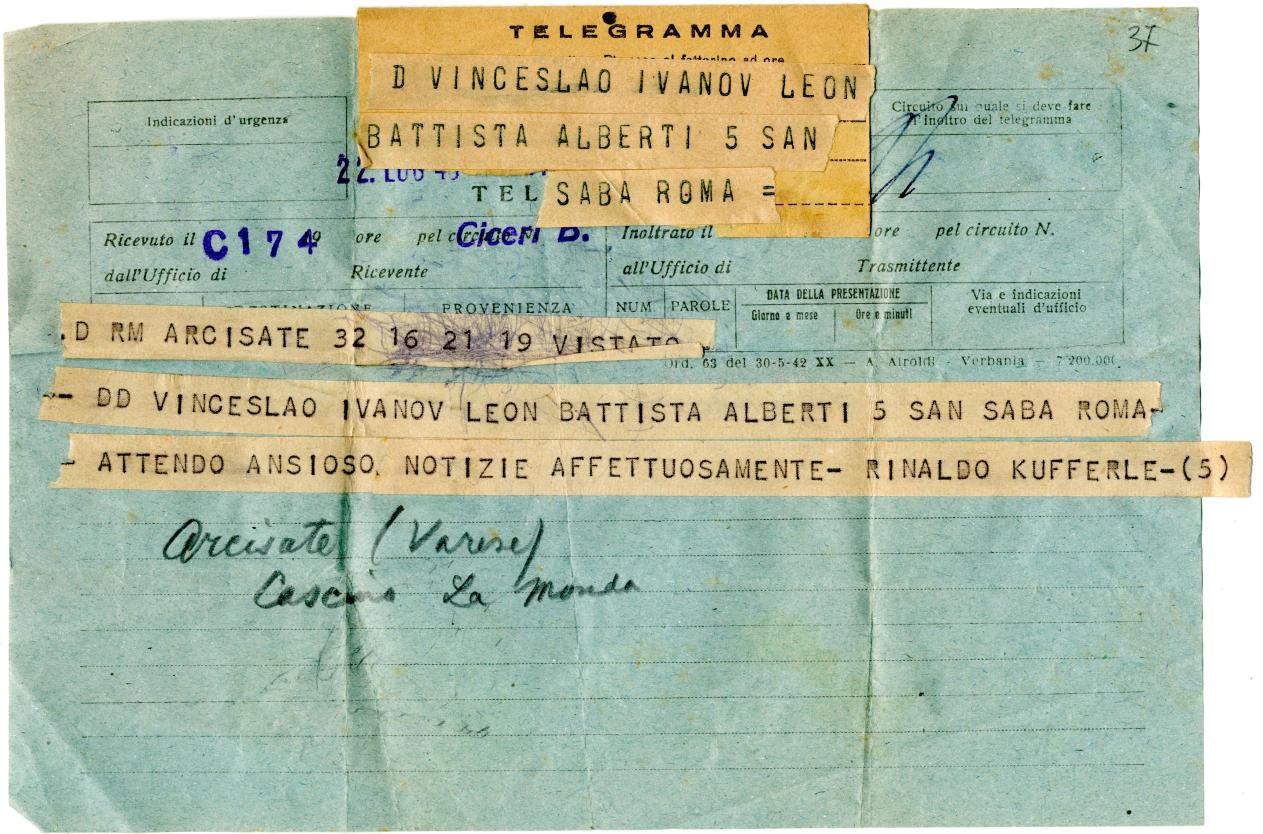 TELEGRAMMA
37
D VINCESLAO IVANOV LEON
BATTISTA ALBERTI 5 SAN
SABA ROMA =
Indicazioni d'urgenza
Circuito sul quale si deve fare
l'inoltro del telegramma
22. LUG
TEL
Ricevuto il C174 9 ore pel circuito N. Ciceri B.
Inoltrato il ore pel circuito N.
dall'Ufficio di Ricevente
all'Ufficio di Trasmittente
DESTINAZIONE PROVENIENZA NUM. PAROLE DATA DELLA PRESENTAZIONE Via e indicazioni
Giorno a mese Ore e minuti eventuali d'ufficio
.D RM ARCISATE 32 16 21 19 VISTATO -
Ord. 63 del 30-5-42 XX — A. Airoldi - Verbania — 7 200.000
- DD VINCESLAO IVANOV LEON BATTISTA ALBERTI 5 SAN SABA ROMA-
- ATTENDO ANSIOSO. NOTIZIE AFFETTUOSAMENTE- RINALDO KUFFERLE-(5)
Arcisate (Varese)
Cascina La Monda